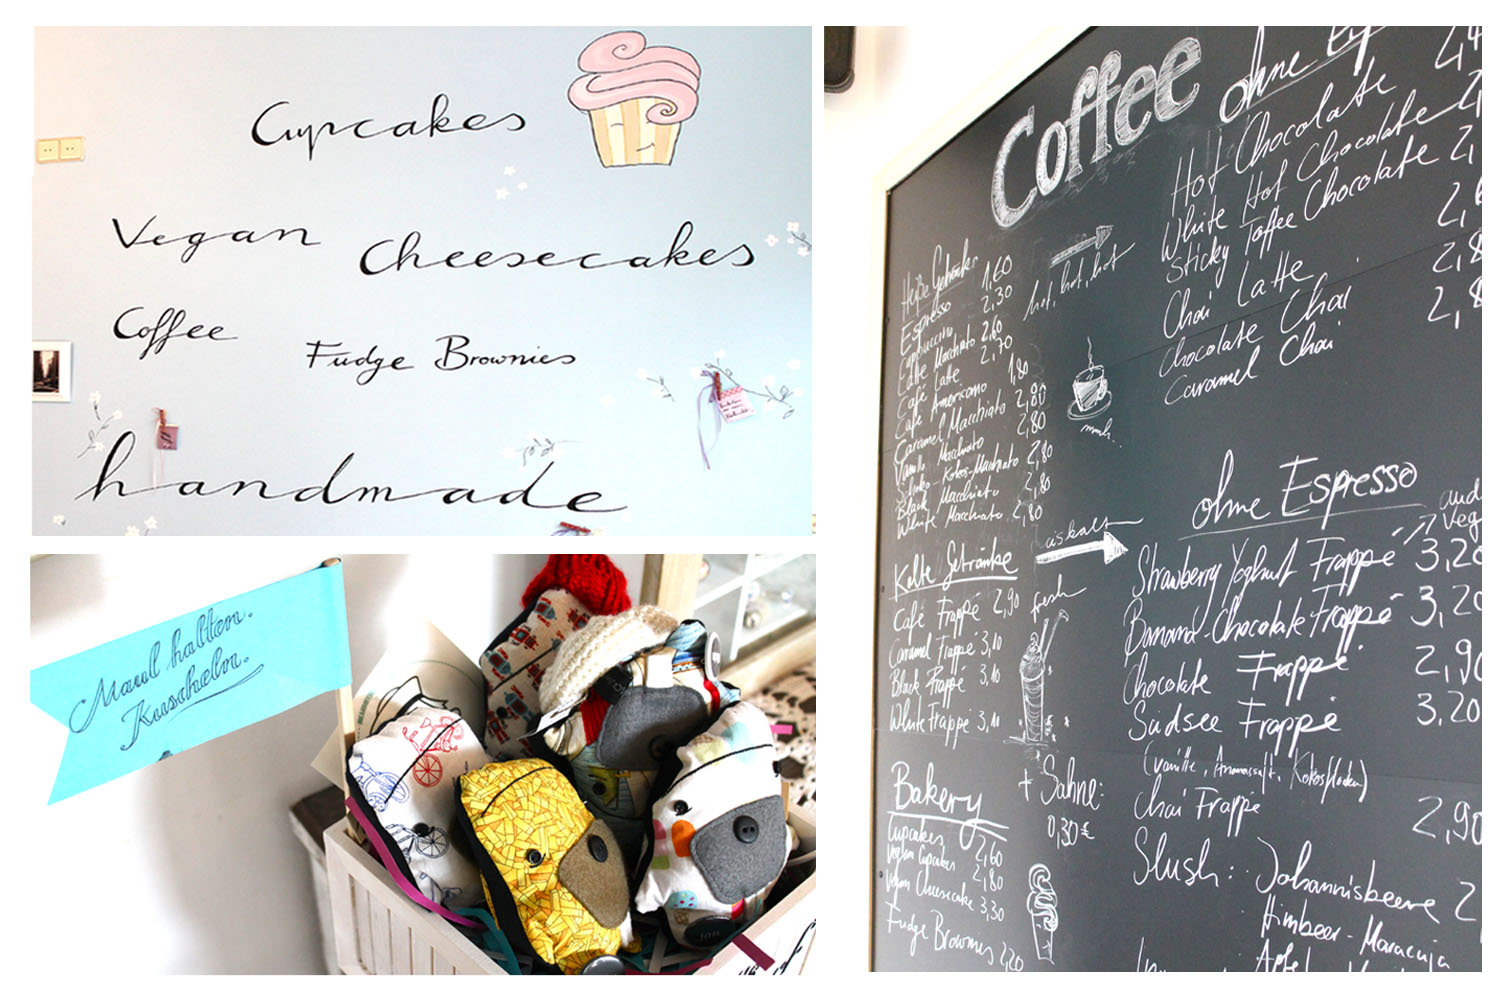 Cupcakes
Vegan Cheesecakes
Coffee
Fudge Brownies
handmade
Maul halten.
Kuscheln.
Coffee
ohne
Hot Chocolate 2,
White Hot Chocolate 2,
Sticky Toffee Chocolate 2,
Chai Latte 2,
Chocolate Chai 2,8
Caramel Chai 2,8
hot, hot, hot
Heiße Getränke
Espresso 1,60
Cappuccino 2,30
Latte Macchiato 2,60
Café Latte 2,70
Café Americano 1,80
Caramel Macchiato 2,80
Vanille Macchiato 2,80
Schoko-Kokos-Macchiato 2,80
Black Macchiato 2,80
White Macchiato 2,80
mmh..
Kalte Getränke
eiskalt
fresh
Café Frappé 2,90
Caramel Frappé 3,10
Black Frappé 3,10
White Frappé 3,10
ohne Espresso
Strawberry Yoghurt Frappé 3,20
Banana-Chocolate Frappé 3,20
Chocolate Frappé 2,90
Südsee Frappé 3,20
(Vanille, Ananassaft, Kokosflocken)
Chai Frappé 2,90
Slush: Johannisbeere 2
Himbeer-Maracuja
Apfel
+ Sahne:
0,30€
Bakery
Cupcakes 2,60
Vegan Cupcakes 2,80
Vegan Cheesecake 3,30
Fudge Brownies 2,20